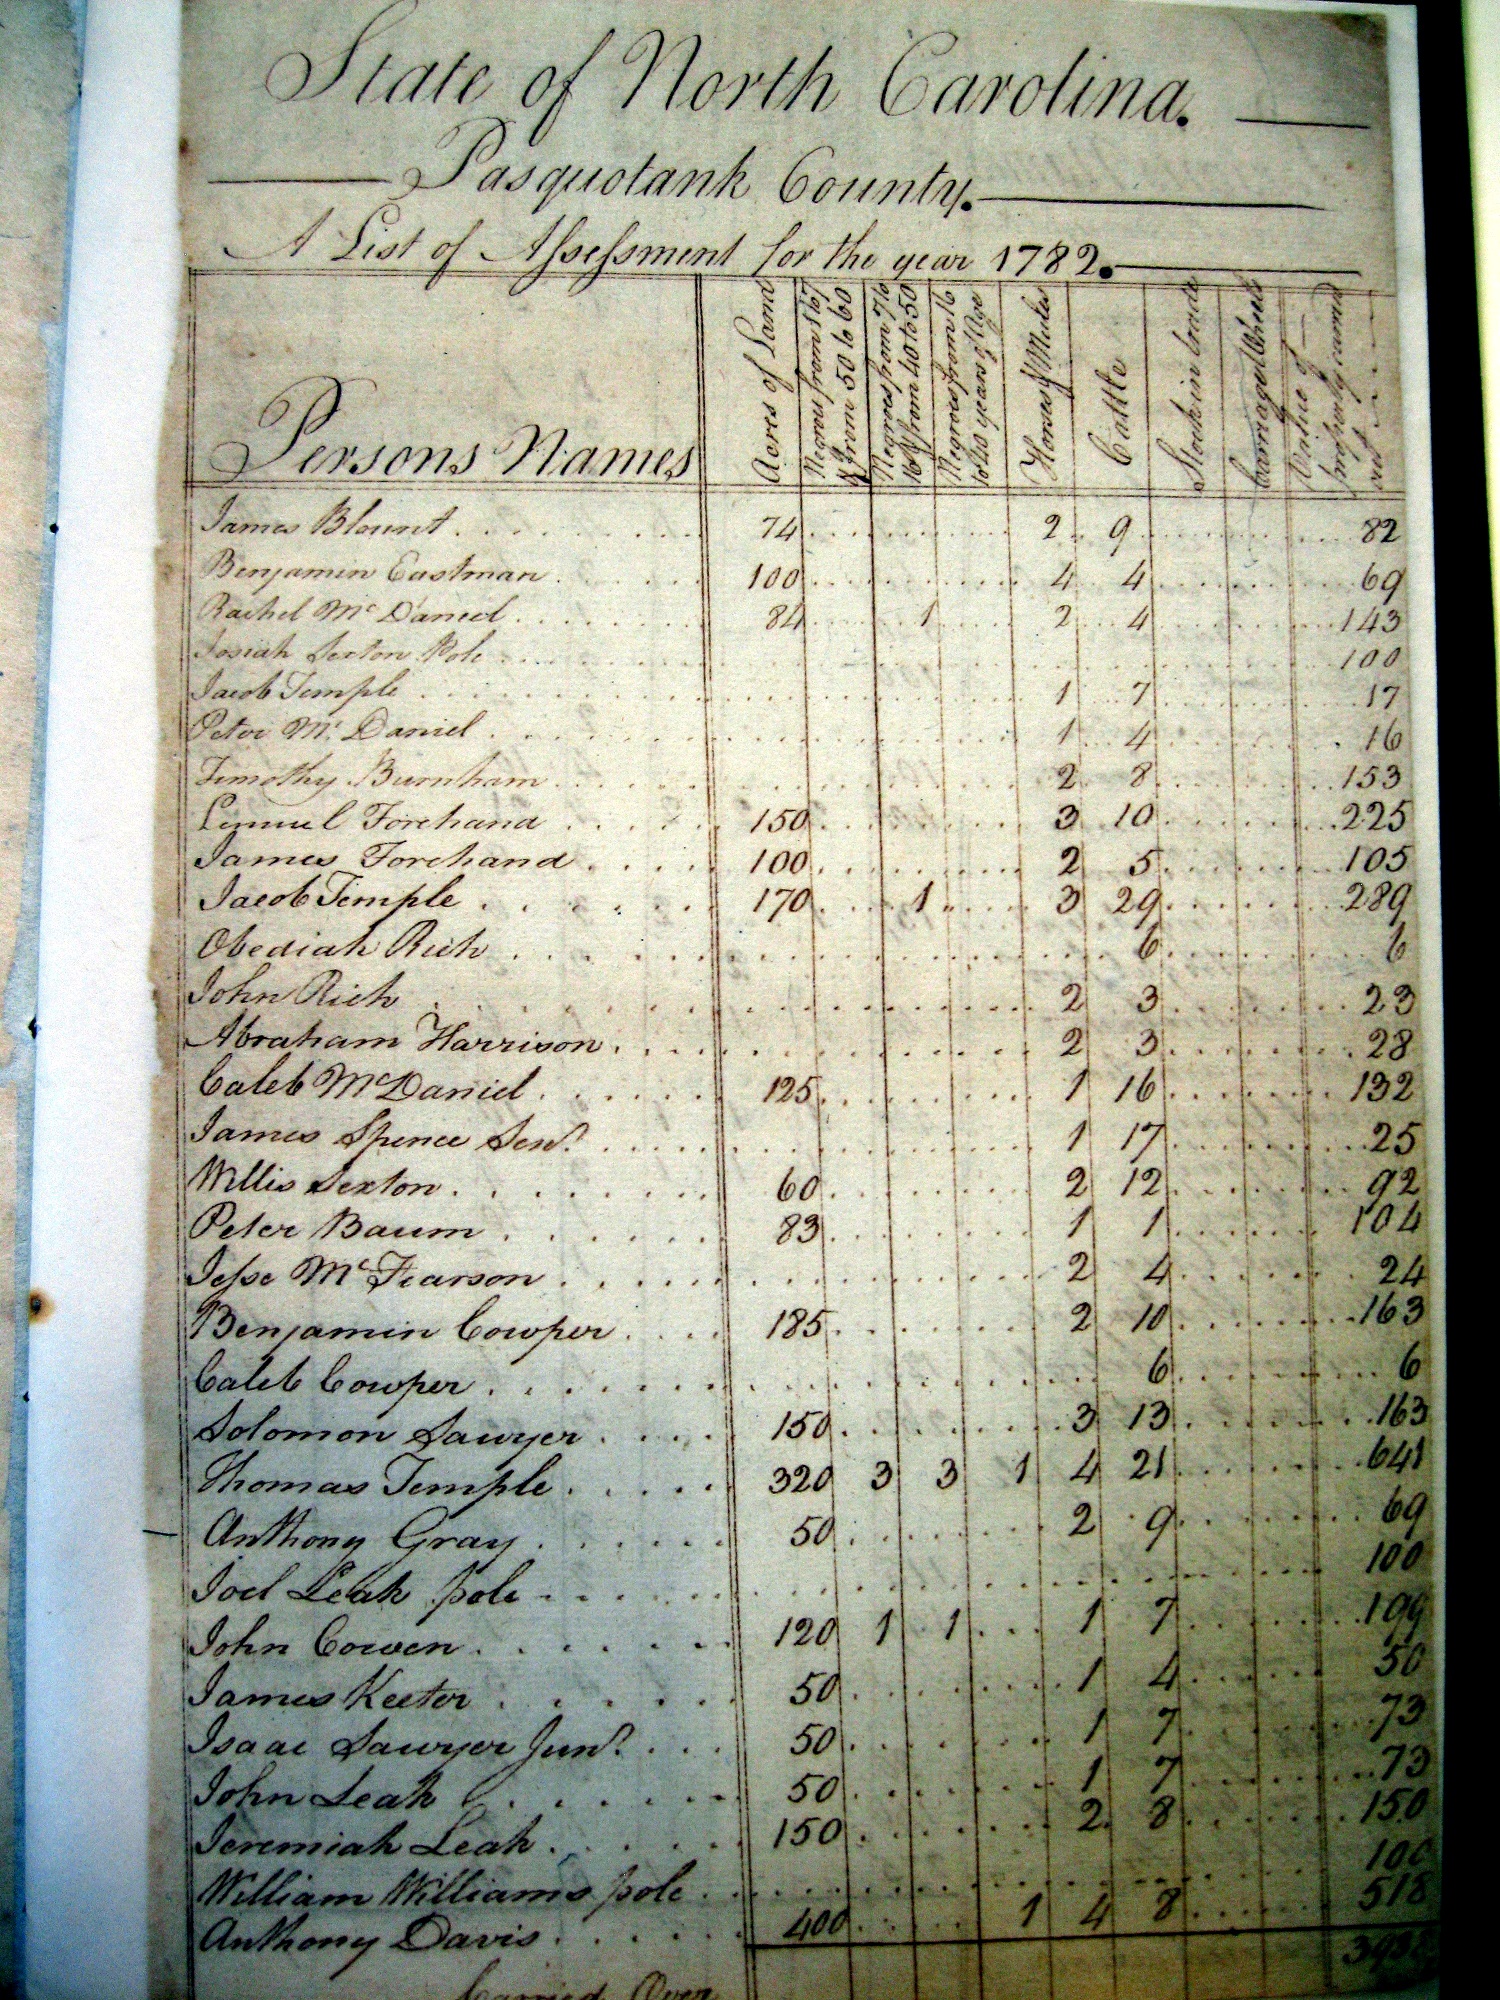 State of North Carolina.
Pasquotank County.
A List of Assessment for the year 1782.
Persons Names Acres of Land Negroes from 1 to 7 & from 50 to 60 Negroes from 7 to 16 & from 40 to 50 Negroes from 16 to 40 years of Age Horses & Mules Cattle Stock in trade Carriage Wheels Value of property carried out
James Blount 74 2 9 82
Benjamin Eastman 100 4 4 69
Rachel McDaniel 84 1 2 4 143
Josiah Sexton Pole 100
Jacob Temple 1 7 17
Peter Mc Daniel 1 4 16
Timothy Burnham 2 8 153
Lemuel Forehand 150 3 10 225
James Forehand 100 2 5 105
Jacob Temple 170 1 3 29 289
Obediah Rich 6 6
John Rich 2 3 23
Abraham Harrison 2 3 28
Caleb McDaniel 125 1 16 132
James Spence Senr. 1 17 25
Willis Sexton 60 2 12 92
Peter Baum 83 1 1 104
Jesse McFearson 2 4 24
Benjamin Cowper 185 2 10 163
Caleb Cowper 6 6
Solomon Sawyer 150 3 13 163
Thomas Temple 320 3 3 1 4 21 641
Anthony Gray 50 2 9 69
Joel Leak pole 100
John Cowen 120 1 1 1 7 199
James Keetor 50 1 4 50
Isaac Sawyer Junr. 50 1 7 73
John Leak 50 1 7 73
Jeremiah Leak 150 2 8 150
William Williams pole 100
Anthony Davis 400 1 4 8 518
Carried Over